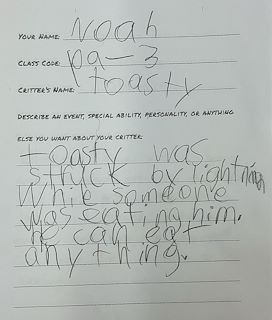 Your Name: Noah
Class Code: pa-3
Critter's Name: toasty
Describe an event, special ability, personality, or anything
else you want about your critter:
toasty was
struck by lightning
while someone
was eating him.
he can eat
anything.